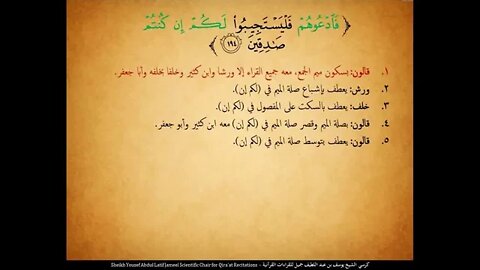 ﴿ فَٱدۡعُوهُمۡ فَلۡيَسۡتَجِيبُواْ لَكُمۡ إِن كُنتُمۡ
صَٰدِقِينَ ١٩٤ ﴾
١. قالون: بسكون ميم الجمع، معه جميع القراء إلا ورشا وابن كثير وخلفا بخلفه وأبا جعفر.
٢. ورش: يعطف بإشباع صلة الميم في (لكم إن).
٣. خلف: يعطف بالسكت على المفصول في (لكم إن).
٤. قالون: بصلة الميم وقصر صلة الميم في (لكم إن) معه ابن كثير وأبو جعفر.
٥. قالون: يعطف بتوسط صلة الميم في (لكم إن).
Sheikh Yousef Abdul Latif Jameel Scientific Chair for Qira'at Recitations - كرسي الشيخ يوسف بن عبد اللطيف جميل للقراءات القرآنية